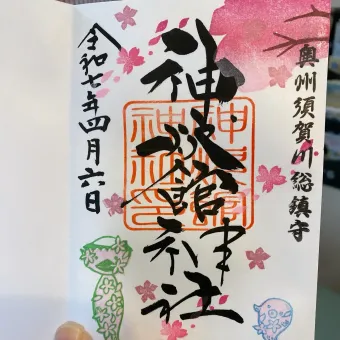 奥州須賀川総鎮守
神炊館神社
令和七年四月六日